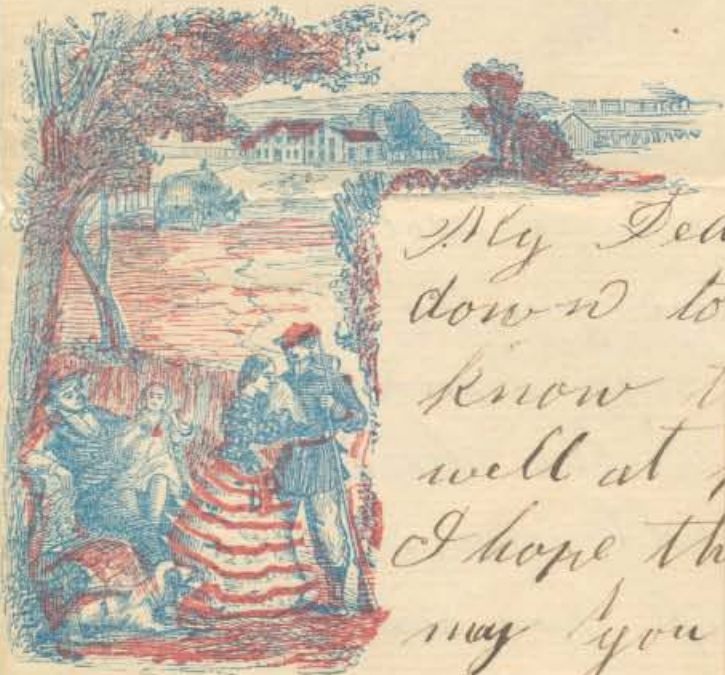 My Dea
down to
know t
well at
I hope th
may you